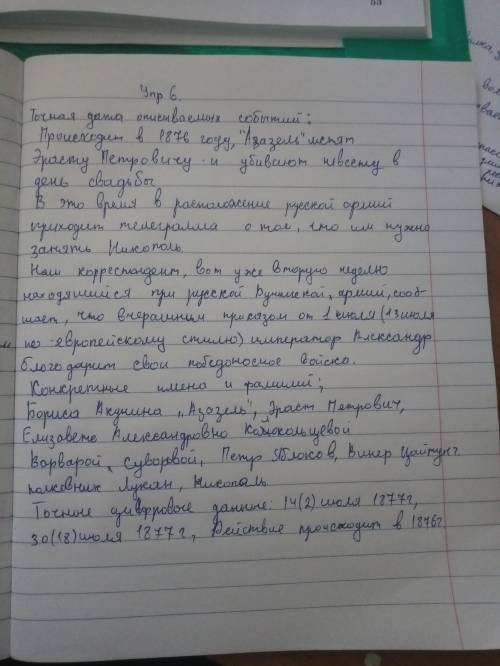 Упр 6.
Точная дата описываемых событий:
Происходит в 1876 году, "Азазель" мстят
Эрасту Петровичу и убивают невесту в
день свадьбы
В это время в расположение русской армий
приходит телеграмма о том, что им нужно
занять Никополь.
Наш корреспондент, вот уже вторую неделю
находящийся при русской Дунайской армий, сооб-
щает, что вчерашним приказом от 1 июля (13 июля
по европейскому стилю) император Александр
благодарит свои победоносное войска.
Конкретные имена и фамилий;
Бориса Акунина „Азазель", Эраст Петрович,
Елизавета Александровно Колокольцевой
Варварой Суворовой, Петр Яблоков, Винер Цайтунг
полковник Лукан, Никополь
Точное цифровое данные: 14(2) июля 1877г,
30(18) июля 1877г, Действие происходит в 1876г